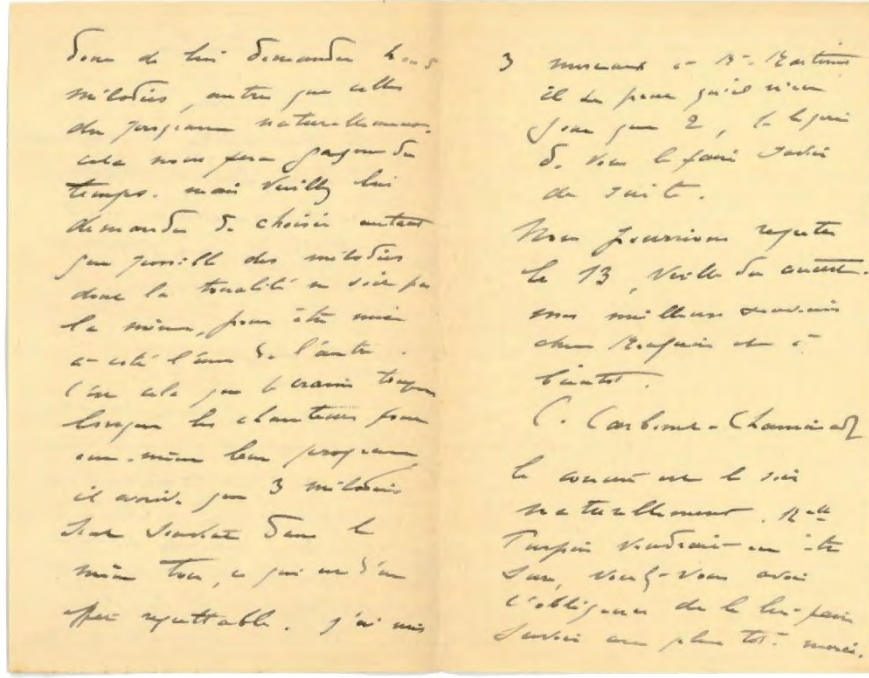 donc de lui demander trois
mélodies, autres que celles
du programme naturellement.
cela nous fera gagner du
temps. mais veuillez lui
demander de choisir autant
que possible des mélodies
dont la tonalité ne soit pas
la même, pour être mise
à côté l'une de l'autre.
C'est cela que je crains toujours
lorsque les chanteurs font
eux-même leur programme,
il arrive que 3 mélodies
sont dans le
même ton, ce qui est d'un
effet regrettable. j'ai mis
3 morceaux à Mr.
il se peut qu'il n'en
joue que 2, je le prie
de vous le faire savoir
de suite.
Nous pourrions répéter
le 13, veille du concert.
mes meilleurs souvenirs
cher et à
bientôt.
C. Carbonel-Chaminade
le concert est le soir
naturellement. Melle
Turpin voudrait en être
sûre, voulez-vous avoir
l'obligeance de le lui faire
savoir au plus tôt. merci.